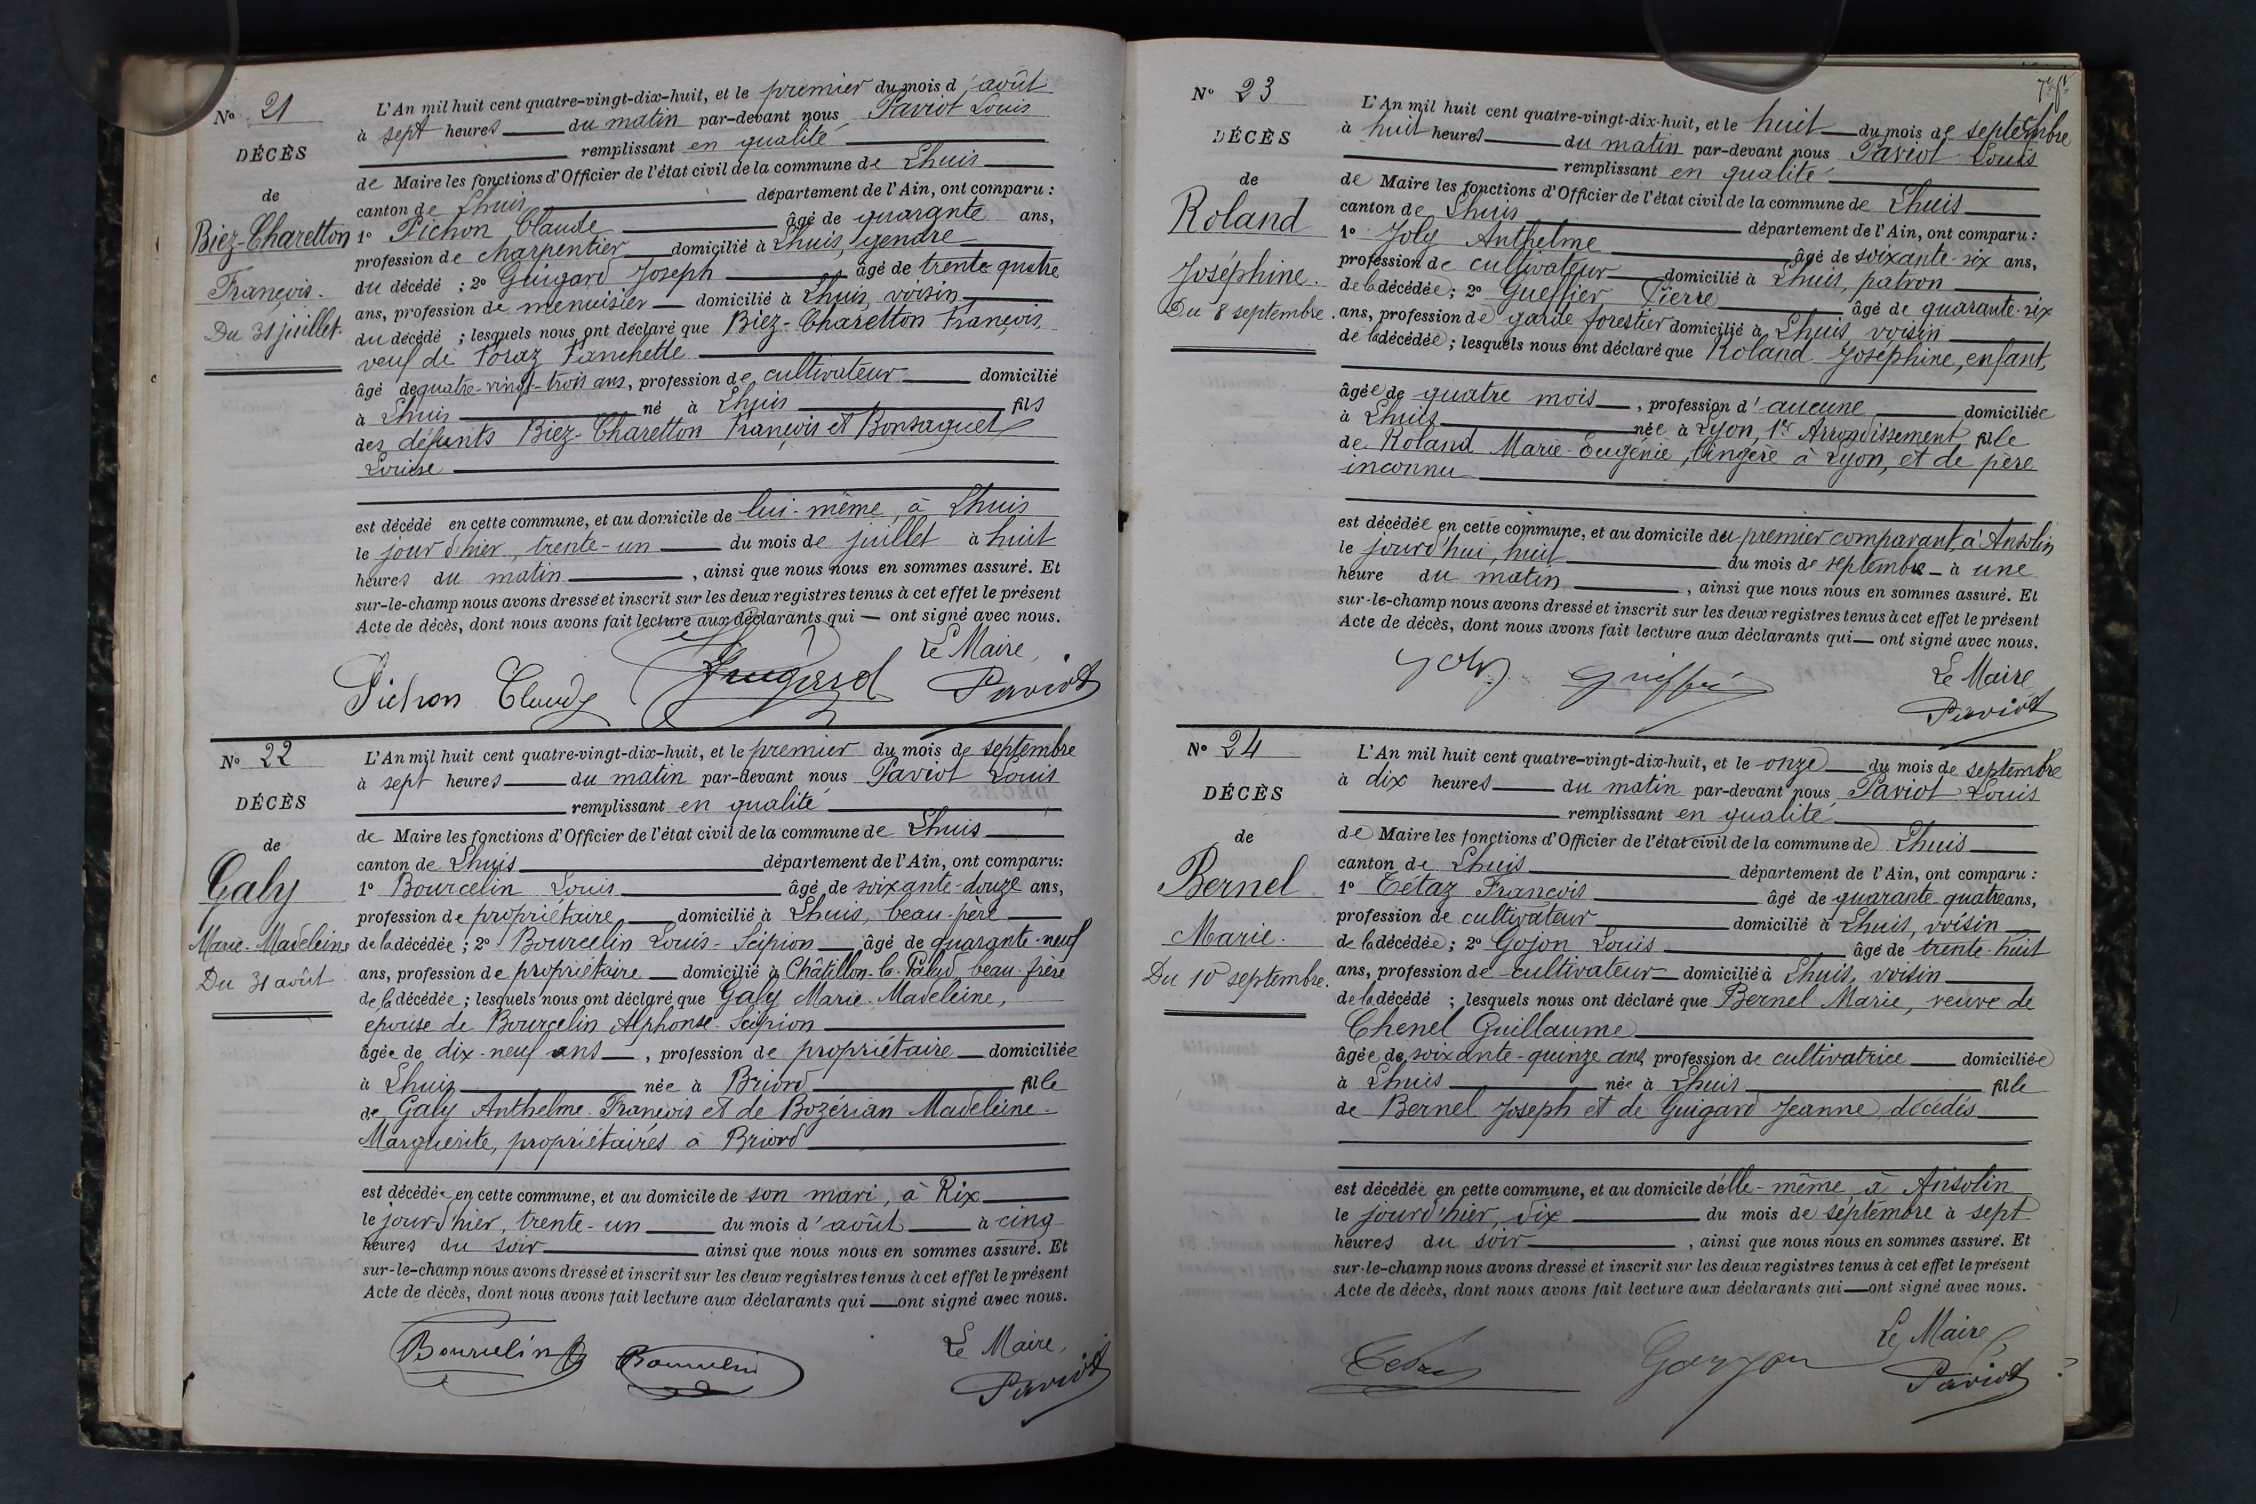 Nº 21
DÉCÈS
de
Biez-Charetton
François.
Du 31 juillet.
L'An mil huit cent quatre-vingt-dix-huit, et le premier du mois d'août
à sept heures du matin par-devant nous Paviot Louis
remplissant en qualité
de Maire les fonctions d'Officier de l'état civil de la commune de Lhuis
canton de Lhuis département de l'Ain, ont comparu :
1º Pichon Claude âgé de quarante ans,
profession de charpentier domicilié à Lhuis, gendre
du décédé ; 2º Guigard Joseph âgé de trente quatre
ans, profession de menuisier domicilié à Lhuis, voisin
du décédé ; lesquels nous ont déclaré que Biez-Charetton François,
veuf de Foraz Fanchette
âgé de quatre-vingt-trois ans, profession de cultivateur domicilié
à Lhuis né à Lhuis fils
des défunts Biez-Charetton François et Bonsaquet
Louise
est décédé en cette commune, et au domicile de lui-même, à Lhuis
le jour d'hier, trente-un du mois de juillet à huit
heures du matin, ainsi que nous nous en sommes assuré. Et
sur-le-champ nous avons dressé et inscrit sur les deux registres tenus à cet effet le présent
Acte de décès, dont nous avons fait lecture aux déclarants qui — ont signé avec nous.
Le Maire,
Pichon Claude Guigard Paviot
Nº 22
DÉCÈS
de
Galy
Marie-Madeleine
Du 31 août
L'An mil huit cent quatre-vingt-dix-huit, et le premier du mois de septembre
à sept heures du matin par-devant nous Paviot Louis
remplissant en qualité
de Maire les fonctions d'Officier de l'état civil de la commune de Lhuis
canton de Lhuis département de l'Ain, ont comparu :
1º Bourcelin Louis âgé de soixante-douze ans,
profession de propriétaire domicilié à Lhuis, beau-père
de la décédée ; 2º Bourcelin Louis-Scipion âgé de quarante-neuf
ans, profession de propriétaire domicilié à Châtillon-la-Palud, beau-frère
de la décédée ; lesquels nous ont déclaré que Galy Marie-Madeleine,
épouse de Bourcelin Alphonse-Scipion
âgée de dix-neuf ans, profession de propriétaire domiciliée
à Lhuis née à Briord fille
de Galy Anthelme-François et de Bozérian Madeleine-
Marguerite, propriétaires à Briord
est décédée en cette commune, et au domicile de son mari, à Rix
le jour d'hier, trente-un du mois d'août à cinq
heures du soir ainsi que nous nous en sommes assuré. Et
sur-le-champ nous avons dressé et inscrit sur les deux registres tenus à cet effet le présent
Acte de décès, dont nous avons fait lecture aux déclarants qui — ont signé avec nous.
Le Maire,
Bourcelin Bourcelin Paviot
Nº 23
DÉCÈS
de
Roland
Joséphine.
Du 8 septembre.
L'An mil huit cent quatre-vingt-dix-huit, et le huit du mois de septembre
à huit heures du matin par-devant nous Paviot Louis
remplissant en qualité
de Maire les fonctions d'Officier de l'état civil de la commune de Lhuis
canton de Lhuis département de l'Ain, ont comparu :
1º Joly Anthelme âgé de soixante-six ans,
profession de cultivateur domicilié à Lhuis, patron
de la décédée ; 2º Gueffier Pierre âgé de quarante-six
ans, profession de garde forestier domicilié à Lhuis voisin
de la décédée ; lesquels nous ont déclaré que Roland Joséphine, enfant,
âgée de quatre mois, profession d'aucune domiciliée
à Lhuis née à Lyon, 1er Arrondissement fille
de Roland Marie-Eugénie, lingère à Lyon, et de père
inconnu
est décédée en cette commune, et au domicile du premier comparant, à Ansolin
le jourd'hui, huit du mois de septembre à une
heure du matin, ainsi que nous nous en sommes assuré. Et
sur-le-champ nous avons dressé et inscrit sur les deux registres tenus à cet effet le présent
Acte de décès, dont nous avons fait lecture aux déclarants qui — ont signé avec nous.
Le Maire,
Joly Paviot
Nº 24
DÉCÈS
de
Bernel
Marie.
Du 10 septembre.
L'An mil huit cent quatre-vingt-dix-huit, et le onze du mois de septembre
à dix heures du matin par-devant nous Paviot Louis
remplissant en qualité
de Maire les fonctions d'Officier de l'état civil de la commune de Lhuis
canton de Lhuis département de l'Ain, ont comparu :
1º Tétaz François âgé de quarante quatre ans,
profession de cultivateur domicilié à Lhuis, voisin
de la décédée ; 2º Gojon Louis âgé de trente-huit
ans, profession de cultivateur domicilié à Lhuis, voisin
de la décédé ; lesquels nous ont déclaré que Bernel Marie, veuve de
Chenel Guillaume
âgée de soixante-quinze ans, profession de cultivatrice domiciliée
à Lhuis née à Lhuis fille
de Bernel Joseph et de Guigard Jeanne, décédés
est décédée en cette commune, et au domicile d'elle-même à Ansolin
le jourd'hier, dix du mois de septembre à sept
heures du soir, ainsi que nous nous en sommes assuré. Et
sur-le-champ nous avons dressé et inscrit sur les deux registres tenus à cet effet le présent
Acte de décès, dont nous avons fait lecture aux déclarants qui — ont signé avec nous.
Le Maire,
Paviot